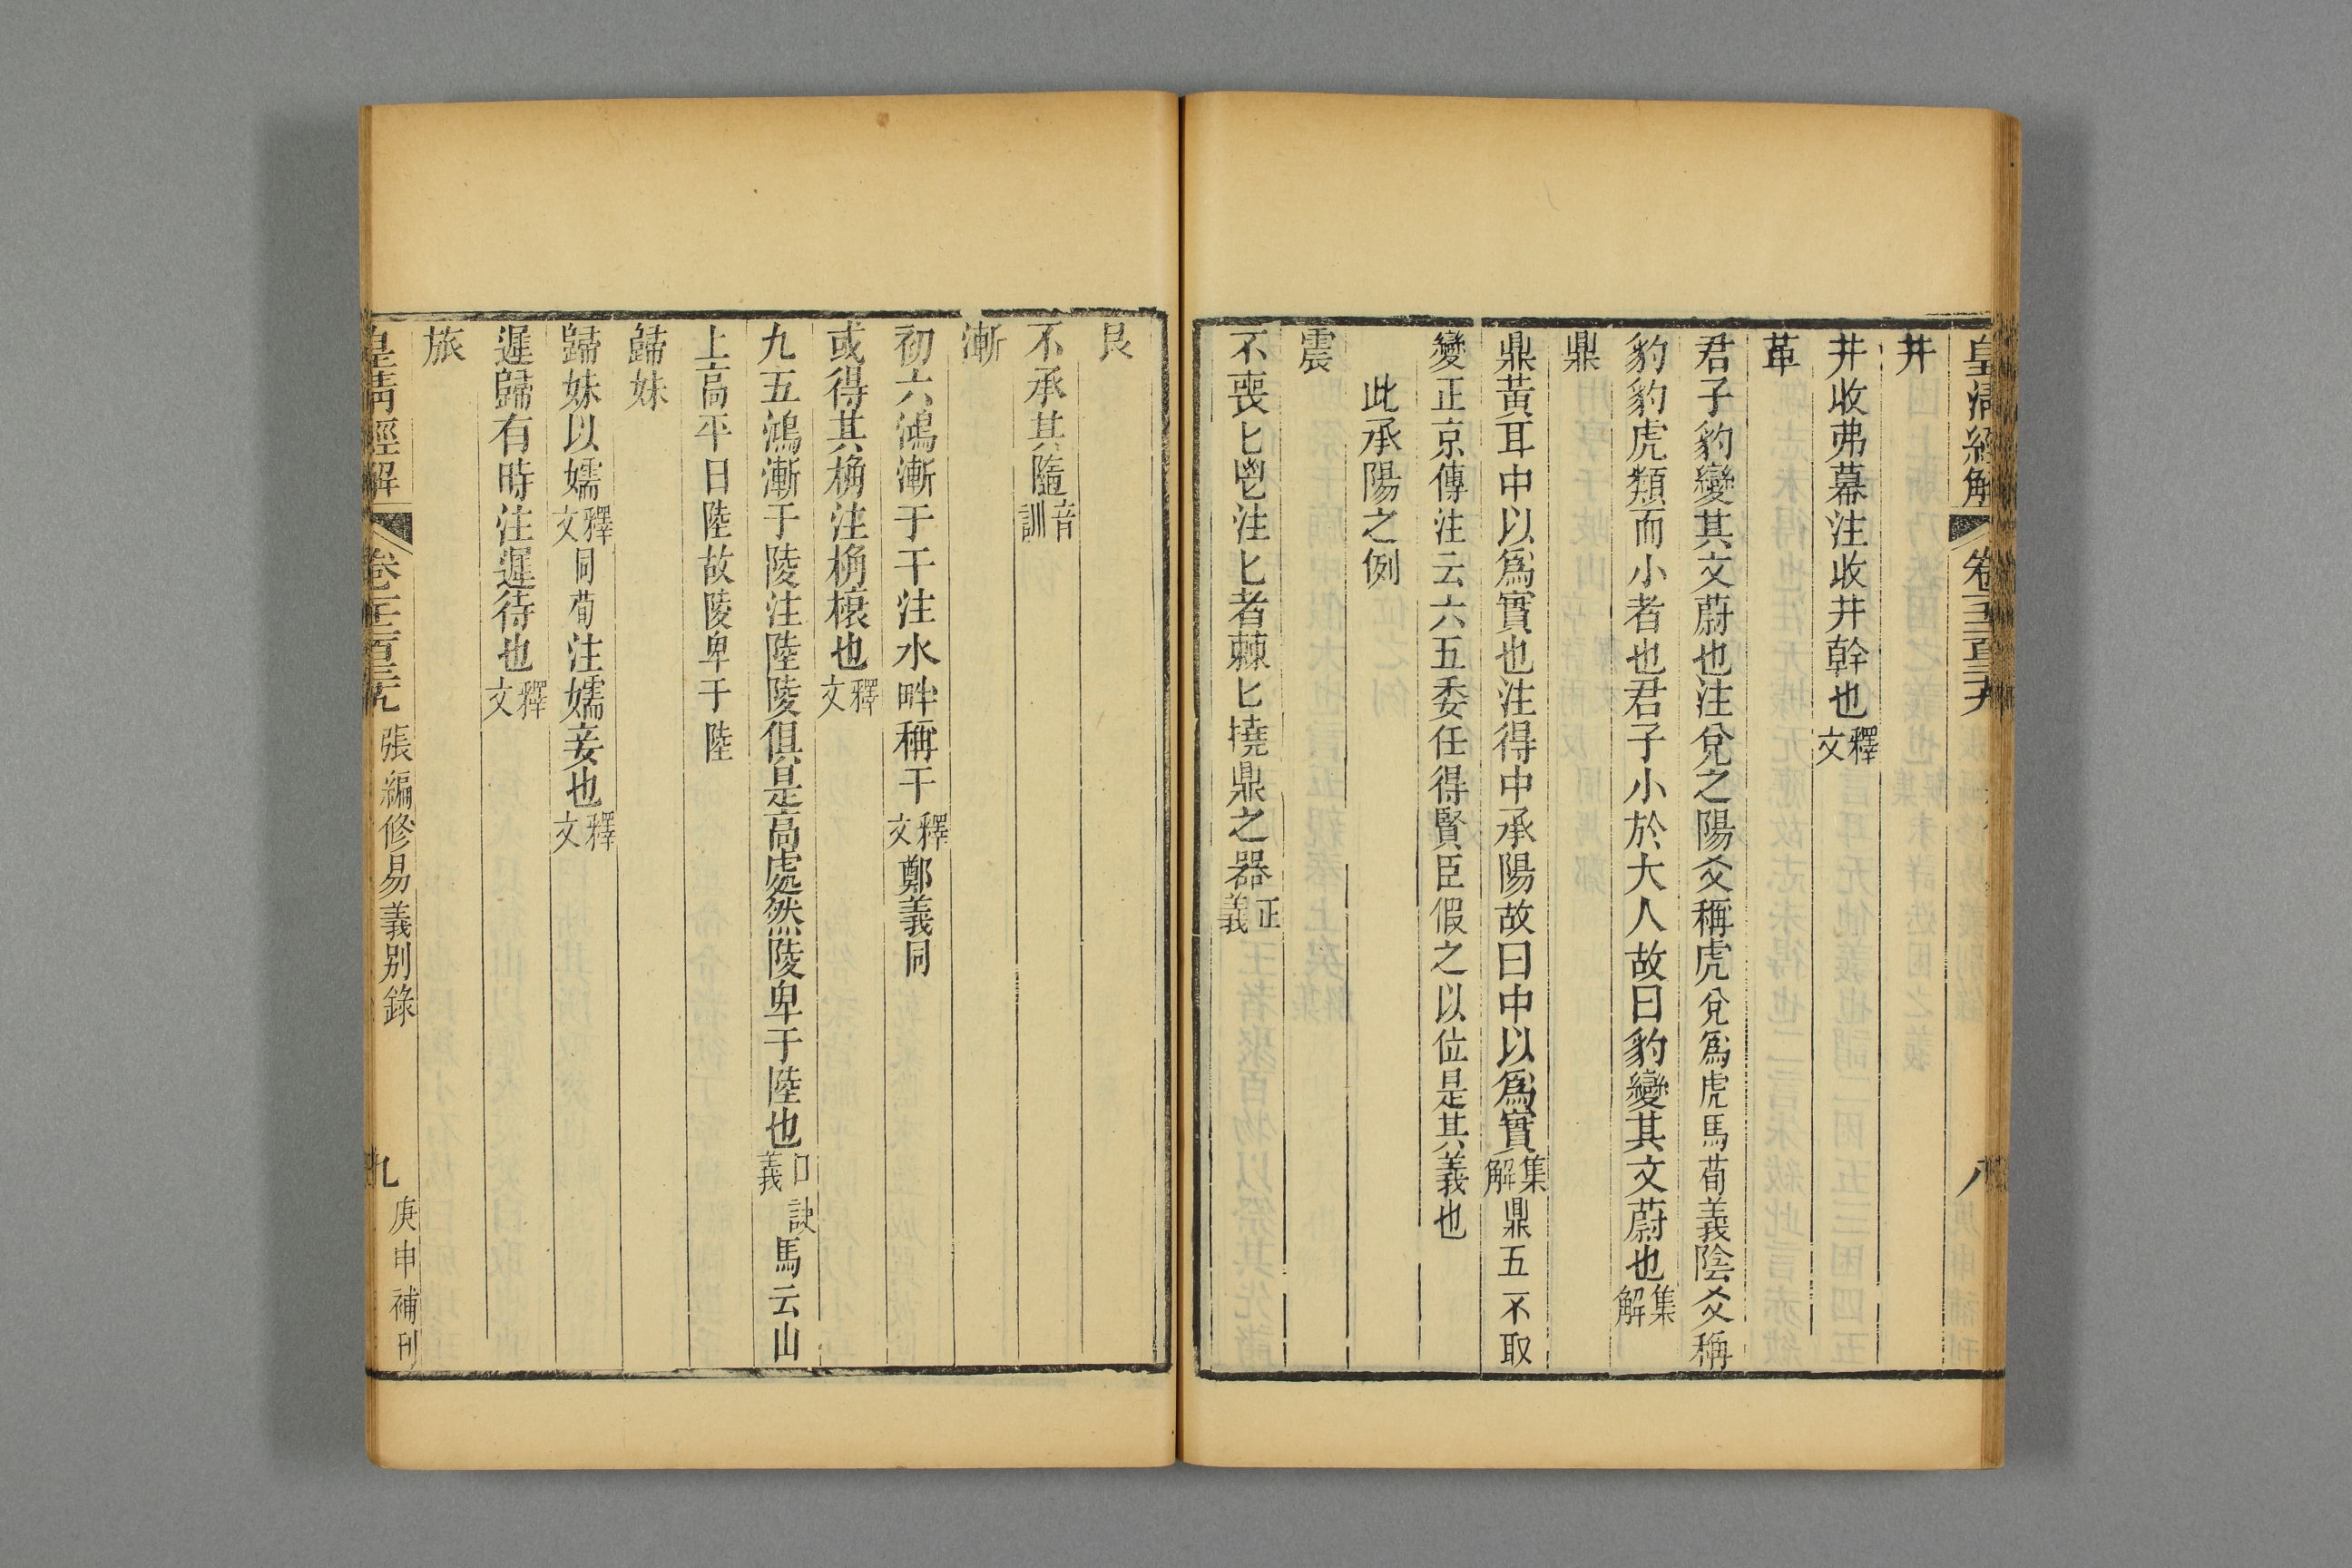 皇清經解 卷千二百三十九 八
井
井收弗幕注收井幹也釋文
革
君子豹變其文蔚也注兌之陽爻稱虎兌爲虎馬荀義陰爻稱
豹豹虎類而小者也君子小於大人故曰豹變其文蔚也集解
鼎
鼎黃耳中以爲實也注得中承陽故曰中以爲實集解鼎五不取
變正京傳注云六五委任得賢臣假之以位是其義也
此承陽之例
震
不喪匕鬯注匕者棘匕橈鼎之器正義
艮
不承其隨音訓
漸
初六鴻漸于干注水畔稱干釋文鄭義同
或得其桷注桷榱也釋文
九五鴻漸于陵注陸陵俱是高處然陵卑于陸也口訣義馬云山
上高平曰陸故陵卑于陸
歸妹
歸妹以嬬釋文同荀注嬬妾也釋文
遲歸有時注遲待也釋文
旅
皇清經解 卷千二百三十九 張編修易義別錄 九 庚申補刊